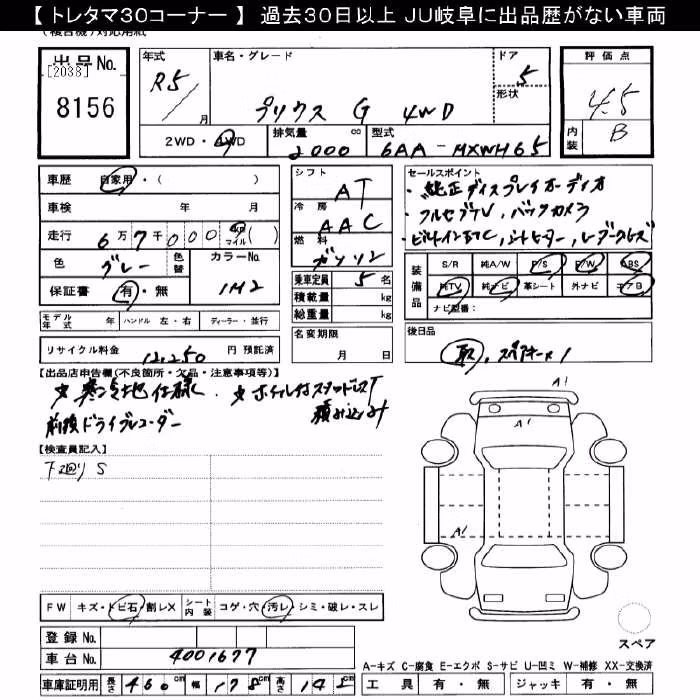 【トレタマ30コーナー】 過去30日以上 JU岐阜に出品歴がない車両
出品No.
[2038]
8156
年式 R5/ 月
車名・グレード プリウス G 4WD
ドア 5
形状
評価点 4.5
内装 B
2WD・4WD
排気量 2000 cc
型式 6AA-MXWH65
車歴 自家用・( )
車検 年 月
走行 6万7千000 km マイル ( )
色 グレー 色替 カラーNo. 1M2
保証書 有・無
シフト AT
冷房 AAC
燃料 ガソリン
乗車定員 5名
積載量 kg
総重量 kg
セールスポイント
・純正ディスプレイオーディオ
・フルセグTV, バックカメラ
・ビルトインETC, シートヒーター, レーダークルーズ
装備品
S/R 純A/W P/S P/W ABS
純TV 純ナビ 革シート 外ナビ エアB
ナビ型番:
モデル年式 年 ハンドル 左・右 ディーラー・並行
名変期限 月 日
後日品
取, スペアキー×1
リサイクル料金 12,250 円 預託済
【出品店申告欄(不良箇所・欠品・注意事項等)】
☆寒冷地仕様 ☆ホイル付スタッドレスT
積み込み
前後ドライブレコーダー
【検査員記入】
下廻りS
A1
A1
A1
FW キズ・トビ石・割レX シート内装 コゲ・穴・汚レ・シミ・破レ・スレ
登録No.
車台No. 4001677
スペア
A-キズ C-腐食 E-エクボ S-サビ U-凹ミ W-補修 XX-交換済
車庫証明用 長さ 460cm 幅 178cm 高さ 142cm
工具 有・無 ジャッキ 有・無